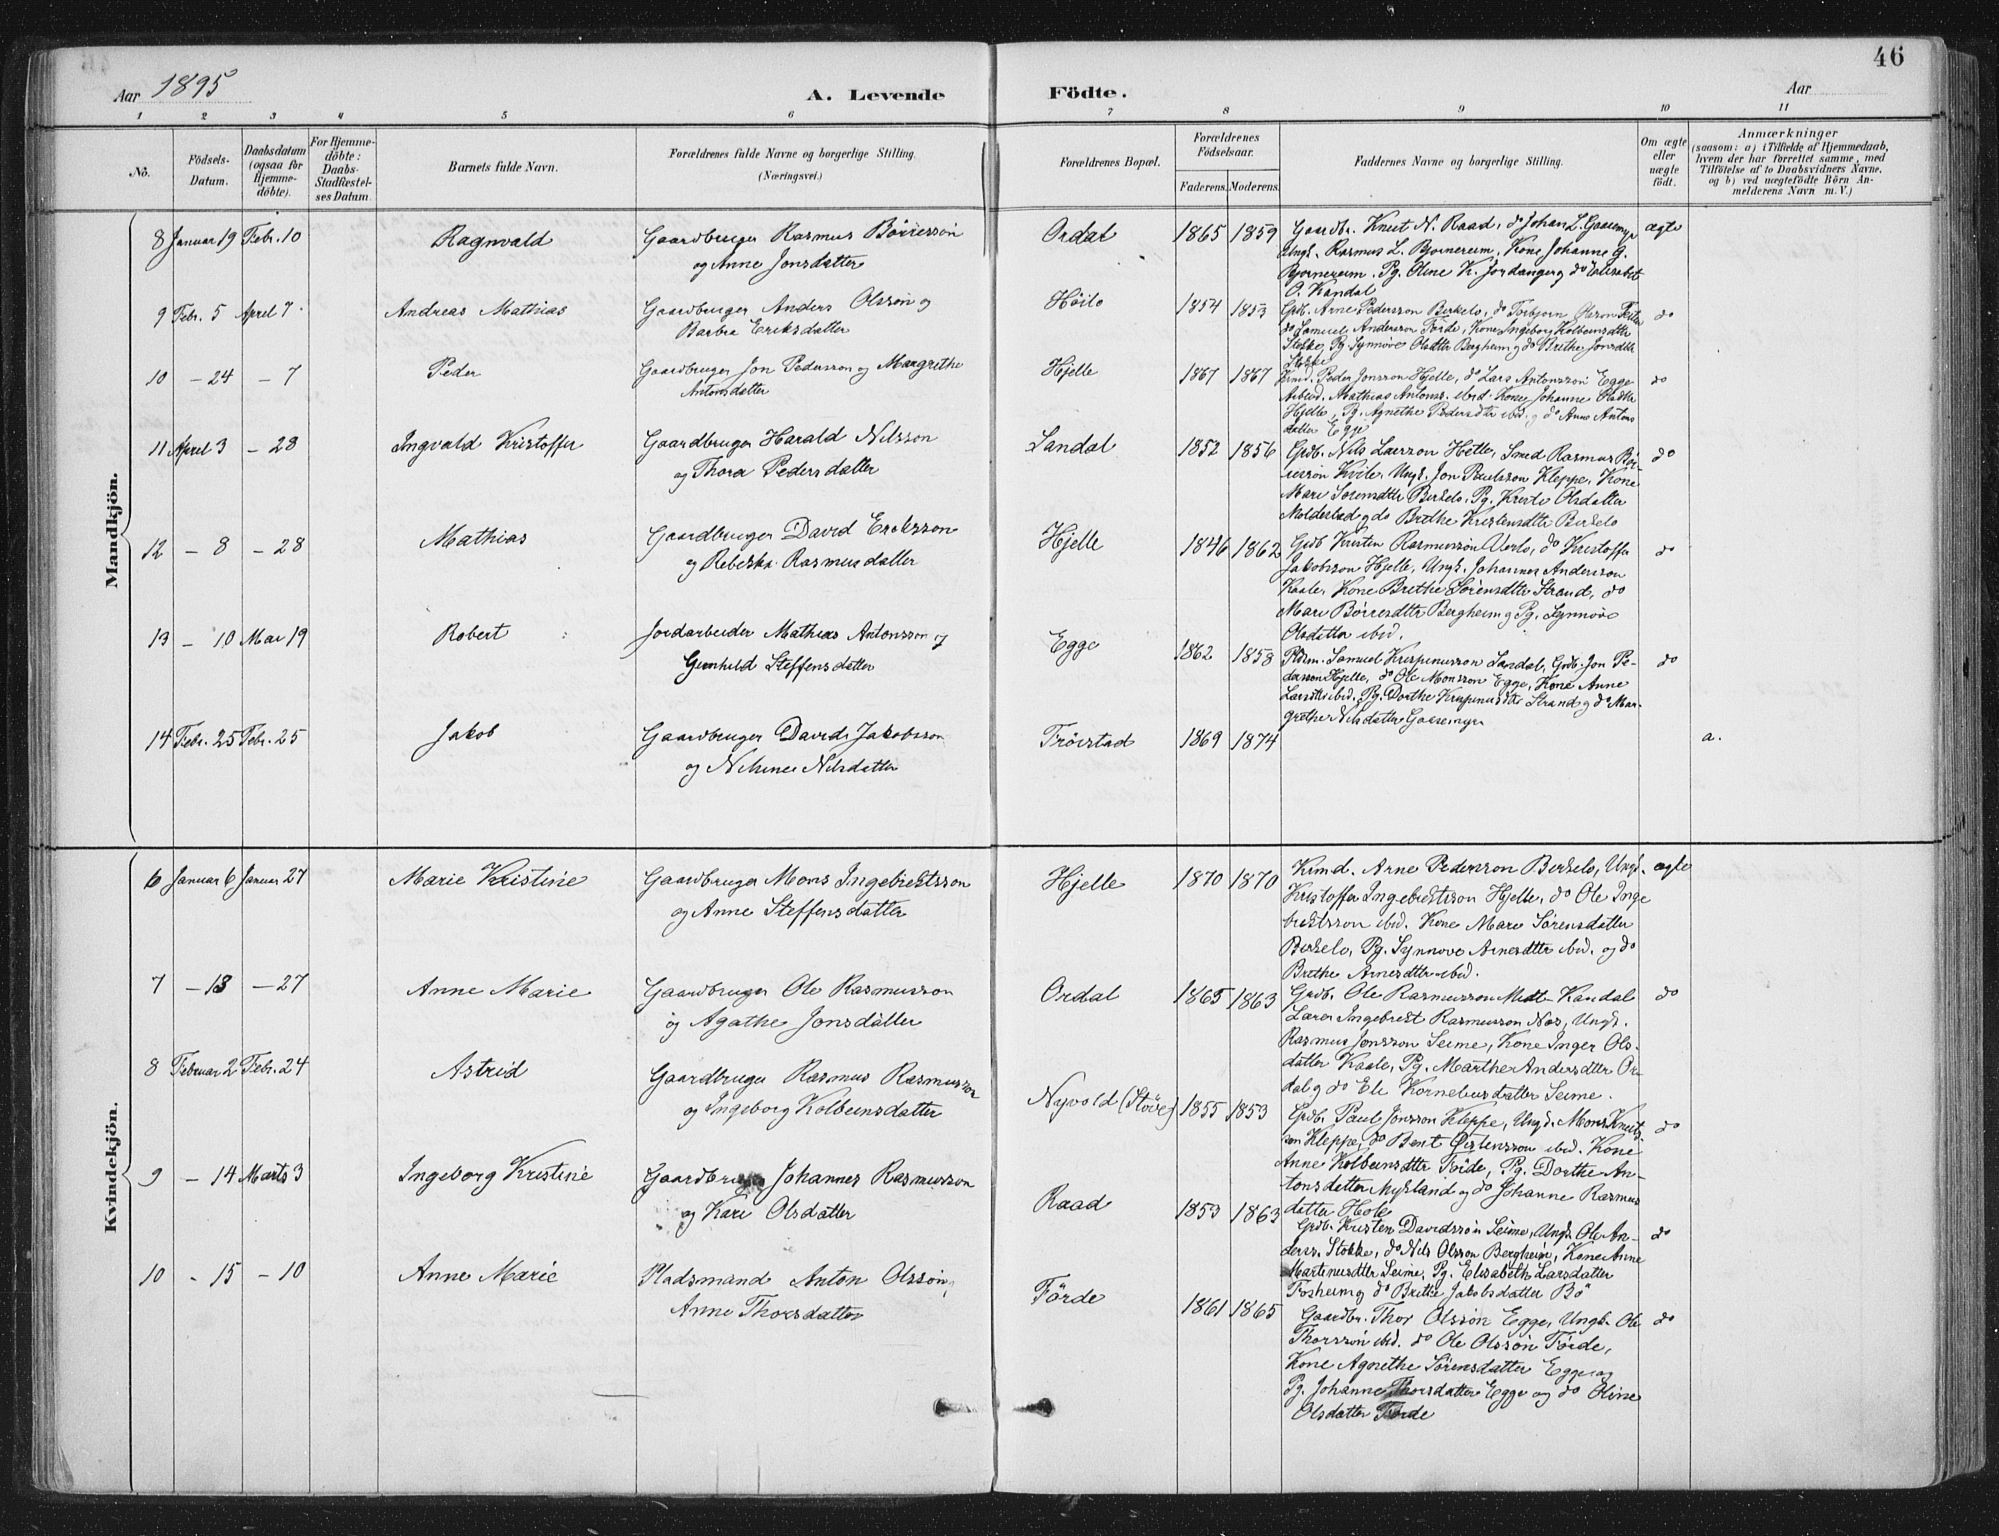 46
Aar 1895
A. Levende Födte.
Aar
1 2 3 4 5 6 7 8 9 10 11
No.
Födsels-Datum.
Daabsdatum (ogsaa for Hjemme-döbte).
For Hjemme-döbte: Daabs-Stadfæstel-ses Datum.
Barnets fulde Navn.
Forældrenes fulde Navne og borgerlige Stilling. (Næringsvei.)
Forældrenes Bopæl.
Forældrenes Födselsaar.
Faderens. Moderens.
Faddernes Navne og borgerlige Stilling.
Om ægte eller uægte födt.
Anmærkninger
(saasom: a) i Tilfælde af Hjemmedaab, hvem der har forrettet samme, med Tilföielse af to Daabsvidners Navne, og b) ved uægtefödte Börn An-melderens Navn m. V.)
Mandkjön.
8 Januar 19 Febr. 10 Ragnvald Gaardbruger Rasmus Börresson
og Anne Jonsdatter
Ordal 1865 1859 Gaardbr. Knut N. Raad, do Johan L. Gaasemyr ægte
Ungk. Rasmus L. Bjornereim, Kone Johanne G.
Bjornereim, Pg. Oline K. Jordanger og do Elisabet
O. Kandal
9 Febr. 5 April 7 Andreas Mathias Gaardbruger Anders Olsson og
Barbra Eriksdatter
Höilo 1854 1853 Grdb. Arne Pedersson Berkelo, do Torbjorn Olsson do
do Samuel Andersson Förde, Kone Ingeborg Kolbeinsdtter
Stokke, Pg Synnöve Olsdtter Bergheim og do Brithe Jonsdtter
Stokke
10 - 24 - 7 Peder Gaardbruger Jon Pedersson og Margrethe
Antonsdatter
Hjelle 1867 1867 Krmd. Peder Jonsson Hjelle, do Lars Antonsson Egge do
Arbeid. Mathias Antons. ibid. Kone Johanne Olsdtter
Hjelle, Pg. Agnethe Pedersdtr ibid. og do Anne Antons
datter Egge
11 April 3 - 28 Ingvald Kristoffer Gaardbruger Harald Nilsson
og Thora Pedersdatter
Sandal 1852 1856 Grdb. Nils Larsson Hetle, Smed Rasmus Bör- do
resson Kvile, Ungk. Jon Paulsson Kleppe, Kone
Mari Sörensdtter Berkelo, Pg. Kristi Olsdatter
Molderstad og do Brithe Kristensdtter Berkelo
12 - 8 - 28 Mathias Gaardbruger David Eriksson
og Rebekka Rasmusdatter
Hjelle 1846 1862 Grdb Kristen Rasmussön Verlo, do Kristoffer do
Jakobsson Hjelle, Ungk. Johannes Andersson
Kaale, Kone Brithe Sörensdtter Strand, do
Mari Börresdtter Bergheim og Pg. Synnöve
Olsdatter ibid.
13 - 10 Mai 19 Robert Jordarbeider Mathias Antonsson og
Gunhild Steffensdatter
Egge 1862 1858 Pldsm. Samuel Krispinusson Sandal, Grdb. Jon Pe- do
dersson Hjelle, do Ole Monsson Egge, Kone Anne
Larsdtr ibid. Pg. Dorthe Krispinusdtr Strand og do Mar-
grethe Nilsdatter Gaasemyr
14 Febr. 25 Febr. 25 Jakob Gaardbruger David Jakobsson
og Nilsine Nilsdatter
Tröistad 1869 1874 a.
Kvindekjön.
6 Januar 6 Januar 27 Marie Kristine Gaardbruger Mons Ingebrictsson
og Anne Steffensdatter
Hjelle 1870 1870 Krmd. Arne Pedersson Berkelo, Ungk. ægte
Kristoffer Ingebrictsson Hjelle, do Ole Inge
brictsson ibid. Kone Mari Sörensdatter
Berkelo, Pg. Synnove Arnesdtter ibid. og do
Brithe Arnesdtter ibid.
7 - 13 - 27 Anne Marie Gaardbruger Ole Rasmusson
og Agathe Jonsdatter
Ordal 1865 1863 Grdb. Ole Rasmusson Midt-Kandal do
Lærer Ingebrict Rasmusson Nos, Ungk.
Rasmus Jonsson Seime, Kone Inger Ols-
datter Kaale, Pg. Marthe Andersdtter Or-
dal og do Eli Korneliusdatter Seime.
8 Februar 2 Febr. 24 Astrid Gaardbruger Rasmus Rasmusson
og Ingeborg Kolbeinsdatter
Nyvold (Störe) 1855 1853 Grdb. Paul Jonsson Kleppe, Ungk. Mons Knuts do
son Kleppe, do Bent Östensson ibid. Kone
Anne Kolbeinsdtter Förde, Pg. Dorthe An-
tonsdatter Mykland og do Johanne Rasmus
datter Hole
9 - 14 Marts 3 Ingeborg Kristine Gaardbruger Johannes Rasmusson
og Kari Olsdatter
Raad 1853 1863 Grdb. Kristen Davidssön Seime, Ungk. Ole An- do
derss. Stokke, do Nils Olsson Bergheim, Kone Anne
Martinusdtter Seime, Pg. Elisabeth Larsdatter
Fosheim og do Brithe Jakobsdatter Bö
10 - 15 - 10 Anne Marie Pladsmand Anton Olssön,
Anne Thorsdatter
Förde 1861 1865 Gaardbr. Thor Olssön Egge, Ungk. Ole do
Thorssön ibid. do Ole Olssön Förde,
Kone Agnethe Sörensdatter Egge og
Pg. Johanne Thorsdatter Egge og do Oline
Olsdatter Förde